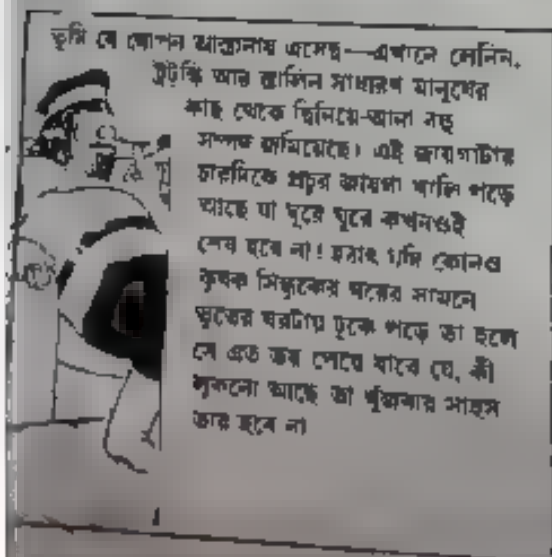 তুমি যে গোপন আস্তানায় এসেছ—এখানে লেনিন,
ট্রটস্কি আর স্তালিন সাধারণ মানুষের
কাছ থেকে ছিনিয়ে-আনা বহু
সম্পদ জমিয়েছে। এই জায়গাটার
চারদিকে প্রচুর জায়গা খালি পড়ে
আছে যা ঘুরে ঘুরে কখনওই
শেষ হবে না! হঠাৎ যদি কোনও
কৃষক সিন্দুকের ঘরের সামনে
ভূতের ঘরটায় ঢুকে পড়ে তা হলে
সে এত ভয় পেয়ে যাবে যে, কী
লুকনো আছে তা খুঁজবার সাহস
তার হবে না